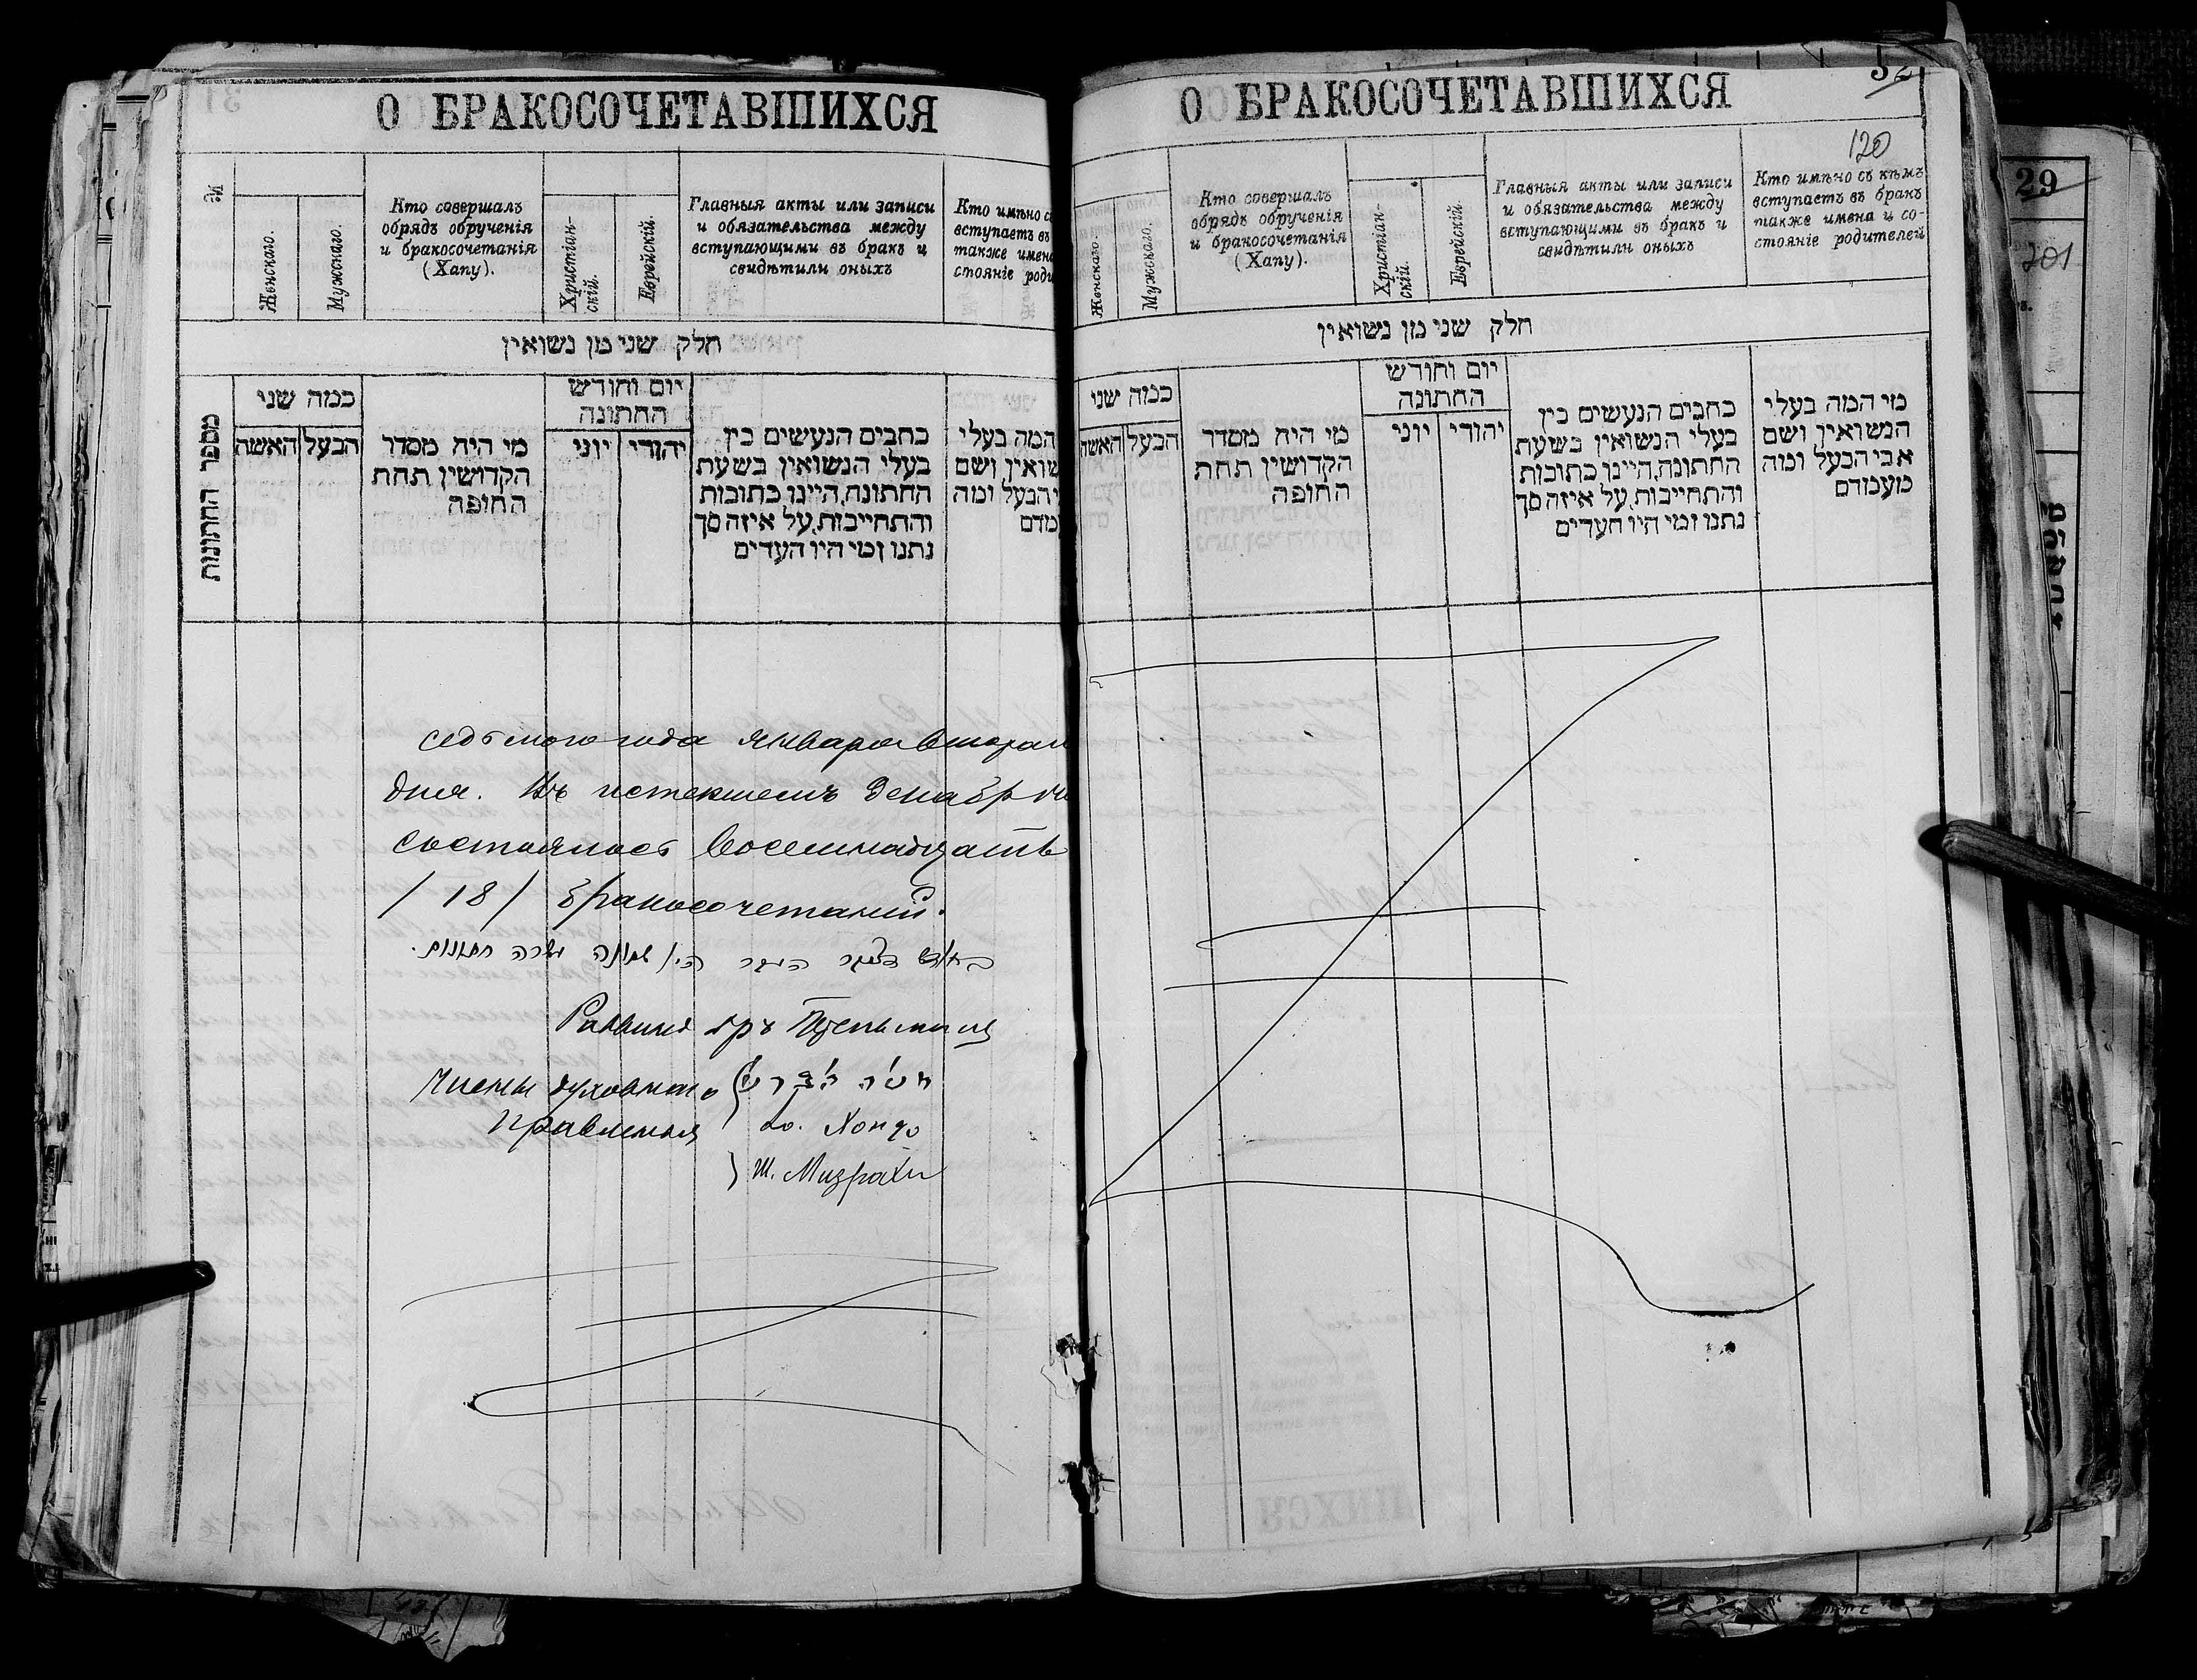 О БРАКОСОЧЕТАВШИХСЯ
№
Женскаго.
Мужскаго.
Кто совершалъ
обрядъ обрученія
и бракосочетанія
(Хапу).
Христіан-
скій.
Еврейскій.
Главныя акты или записи
и обязательства между
вступающими въ бракъ и
свидѣтили оныхъ
Кто имѣно
вступаетъ въ
также имена
стояніе роди
חלק שני מן נשואין
מספר החתונות
כמה שני
האשה
הבעל
מי היה מסדר
הקדושין תחת
החופה
יום וחודש
החתונה
יוני
יהודי
כתבים הנעשים בין
בעלי הנשואין בשעת
החתונה, היינו כתובות
והתחייבות, על איזה סך
נתנו ומי היו העדים
המה בעלי
שואין ושם
י הבעל ומה
מדם
седьмого года января втораго
дня. Въ истекшемъ декабрѣ
состоялось восемнадцать
/ 18 / бракосочетаній.
שמונה עשרה חתונות.
Раввинъ
Члены духовнаго
правленія
Хондо
Ш. Мизрахи
О БРАКОСОЧЕТАВШИХСЯ
120
Женскаго.
Мужскаго.
Кто совершалъ
обрядъ обрученія
и бракосочетанія
(Хапу).
Христіан-
скій.
Еврейскій.
Главныя акты или записи
и обязательства между
вступающими въ бракъ и
свидѣтили оныхъ
Кто имѣно съ кѣмъ
вступаетъ въ бракъ
также имена и со-
стояніе родителей
חלק שני מן נשואין
כמה שני
האשה
הבעל
מי היה מסדר
הקדושין תחת
החופה
יום וחודש
החתונה
יוני
יהודי
כתבים הנעשים בין
בעלי הנשואין בשעת
החתונה, היינו כתובות
והתחייבות, על איזה סך
נתנו ומי היו העדים
מי המה בעלי
הנשואין ושם
אבי הבעל ומה
מעמדם
29
201